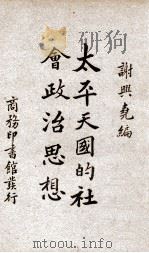 謝興堯編
太平天國的社
會政治思想
商務印書館發行
www.mtoou.info